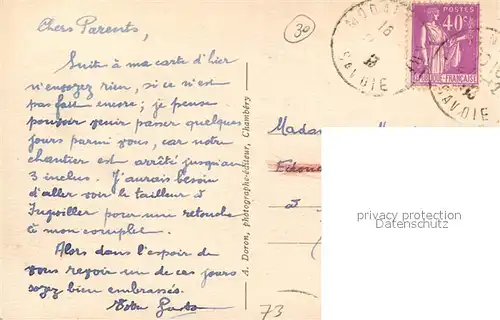 Chers Parents,
Suite à ma carte d'hier
n'envoyez rien, si ce n'est
pas fait encore; je pense
pouvoir venir passer quelques
jours parmi vous, car notre
chantier est arrêté jusqu'au
3 inclus. J'aurais besoin
d'aller voir le tailleur à
Ingwiller pour une retouche
à mon complet.
Alors dans l'espoir de
vous revoir un de ces jours
soyez bien embrassés.
Votre
A. Doron, photographe-éditeur, Chambéry
30
18
SAVOIE
POSTES
40c
RÉPUBLIQUE FRANÇAISE
SAVOIE
Madame
à
privacy protection
Datenschutz
73